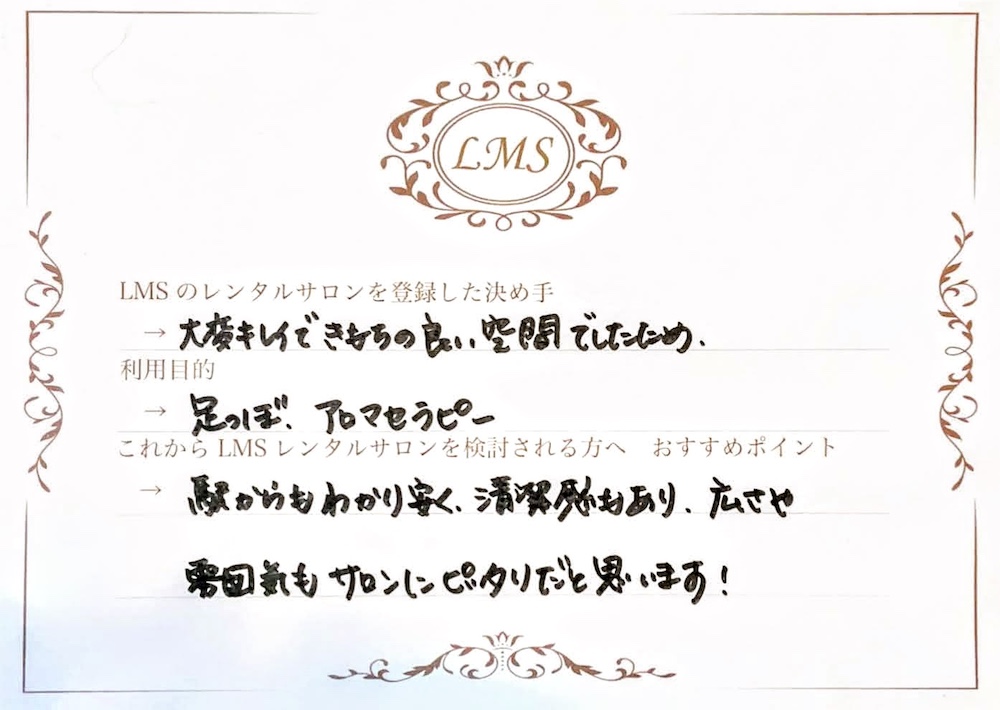 LMS
LMSのレンタルサロンを登録した決め手
→ 大変キレイできもちの良い空間でしたため.
利用目的
→ 足つぼ、アロマセラピー
これからLMSレンタルサロンを検討される方へ　おすすめポイント
→ 駅からもわかり安く、清潔感もあり、広さや
雰囲気もサロンにピッタリだと思います!